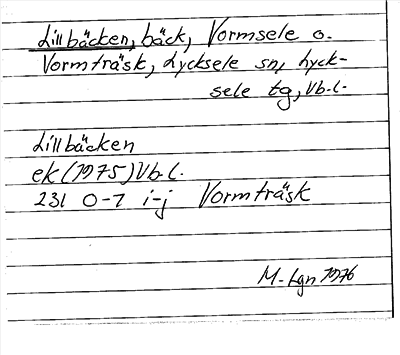 Lillbäcken, bäck, Vormsele o.
Vormträsk, Lycksele sn, Lyck-
sele tg, Vb.l.
Lillbäcken
ek (1975) Vb.l.
231 0-1 i-j Vormträsk
M. Lgn 1976